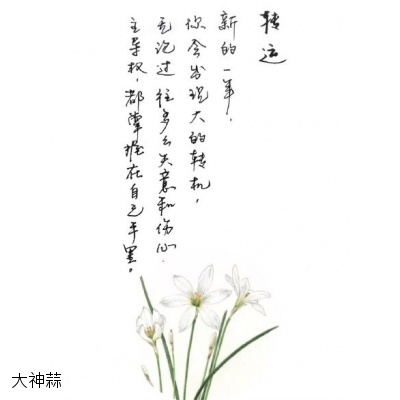 转运
新的一年，
你会发现大的转机，
无论过往多么失意和伤心，
主导权，都掌握在自己手里。
大神蒜